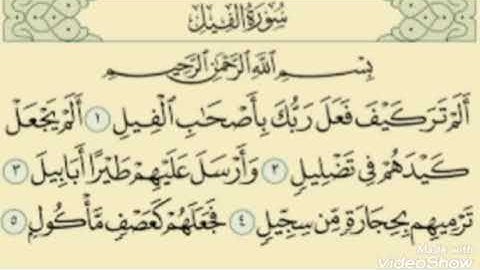 سُورَةُ الفِيلِ
بِسْمِ اللَّهِ الرَّحْمَٰنِ الرَّحِيمِ
أَلَمْ تَرَ كَيْفَ فَعَلَ رَبُّكَ بِأَصْحَابِ الْفِيلِ ١ أَلَمْ يَجْعَلْ
كَيْدَهُمْ فِي تَضْلِيلٍ ٢ وَأَرْسَلَ عَلَيْهِمْ طَيْرًا أَبَابِيلَ ٣
تَرْمِيهِم بِحِجَارَةٍ مِّن سِجِّيلٍ ٤ فَجَعَلَهُمْ كَعَصْفٍ مَّأْكُولٍ ٥
Made with
VideoShow